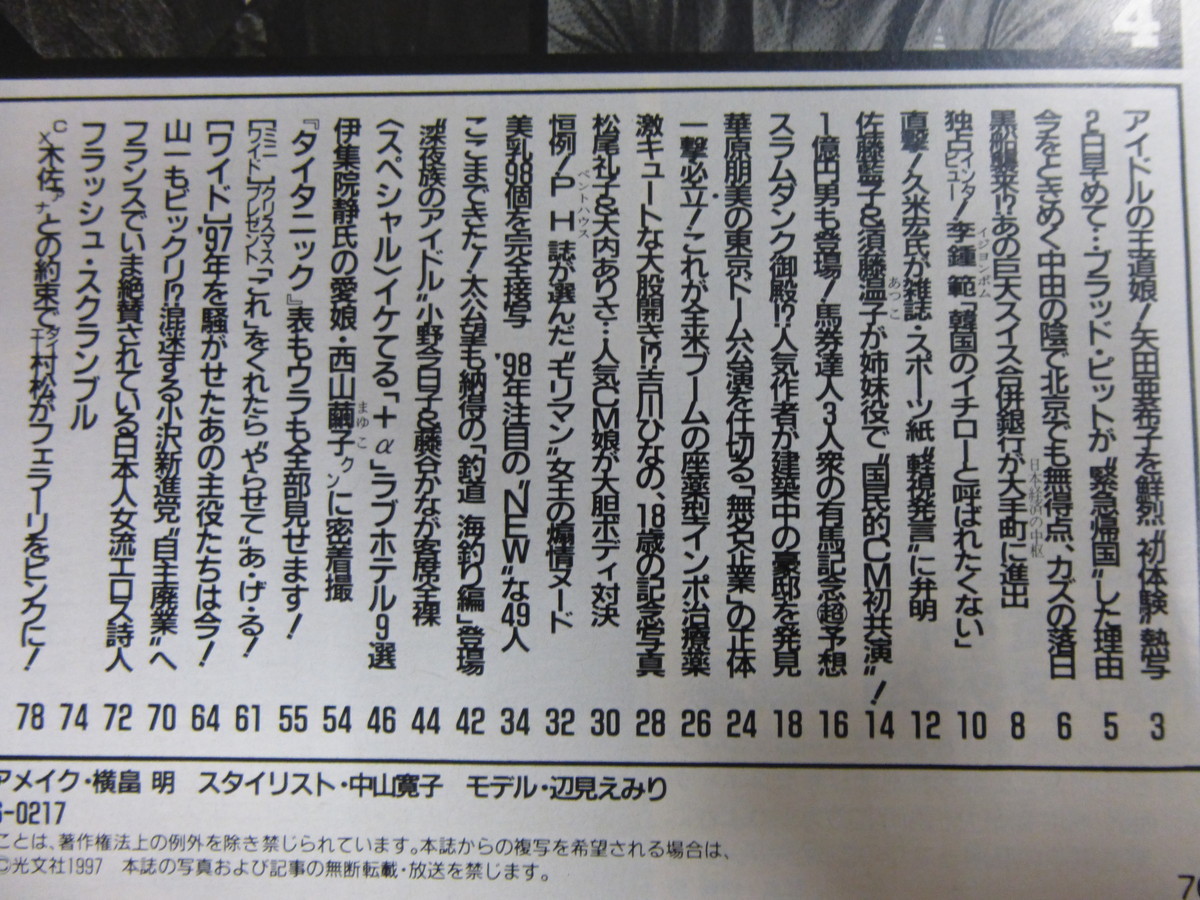 4
アイドルの王道娘!矢田亜希子を鮮烈“初体験”熱写 3
2日早めて…ブラッド・ピットが“緊急帰国”した理由 5
今をときめく中田の陰で北京でも無得点、カズの落日 6
黒船襲来!?あの巨大スイス合併銀行が日本経済の中枢大手町に進出 8
独占インタビュー!李鍾範イジョンボム「韓国のイチローと呼ばれたくない」 10
直撃!久米宏氏が雑誌・スポーツ紙“軽視発言”に弁明 12
佐藤藍子&須藤温子あつこが姉妹役で“国民的CM初共演”! 14
1億円男も登場!馬券達人3人衆の有馬記念超予想 16
スラムダンク御殿!?人気作者が建築中の豪邸を発見 18
華原朋美の東京ドーム公演を仕切る「無名企業」の正体 24
一撃必立!これが全米ブームの座薬型インポ治療薬 26
激キュートな大股開き!?吉川ひなの、18歳の記念写真 28
松尾礼子&大内ありさ…人気CM娘が大胆ボディ対決 30
恒例!PHペントハウス誌が選んだ“モリマン”女王の煽情ヌード 32
美乳98個を完全接写 '98年注目の“NEW”な49人 34
ここまできた!太公望も納得の「釣道 海釣り編」登場 42
“深夜族のアイドル”小野今日子&藤谷かなが客席全裸 44
〈スペシャル〉イケてる「+α」ラブホテル9選 46
伊集院静氏の愛娘・西山繭子まゆこクンに密着撮 54
『タイタニック』表もウラも全部見せます! 55
[ミニワイド]クリスマスプレゼント「これ」をくれたら“やらせて”あ・げ・る! 61
[ワイド]'97年を騒がせたあの主役たちは今! 64
山一もビックリ!?混迷する小沢新進党“自主廃業”へ 70
フランスでいま絶賛されている日本人女流エロス詩人 72
フラッシュ・スクランブル 74
CX木佐アナとの約束でダイナナ村松がフェラーリをピンクに! 78
アメイク・横畠 明 スタイリスト・中山寛子 モデル・辺見えみり
6-0217
ことは、著作権法上の例外を除き禁じられています。本誌からの複写を希望される場合は、
©光文社1997 本誌の写真および記事の無断転載・放送を禁じます。